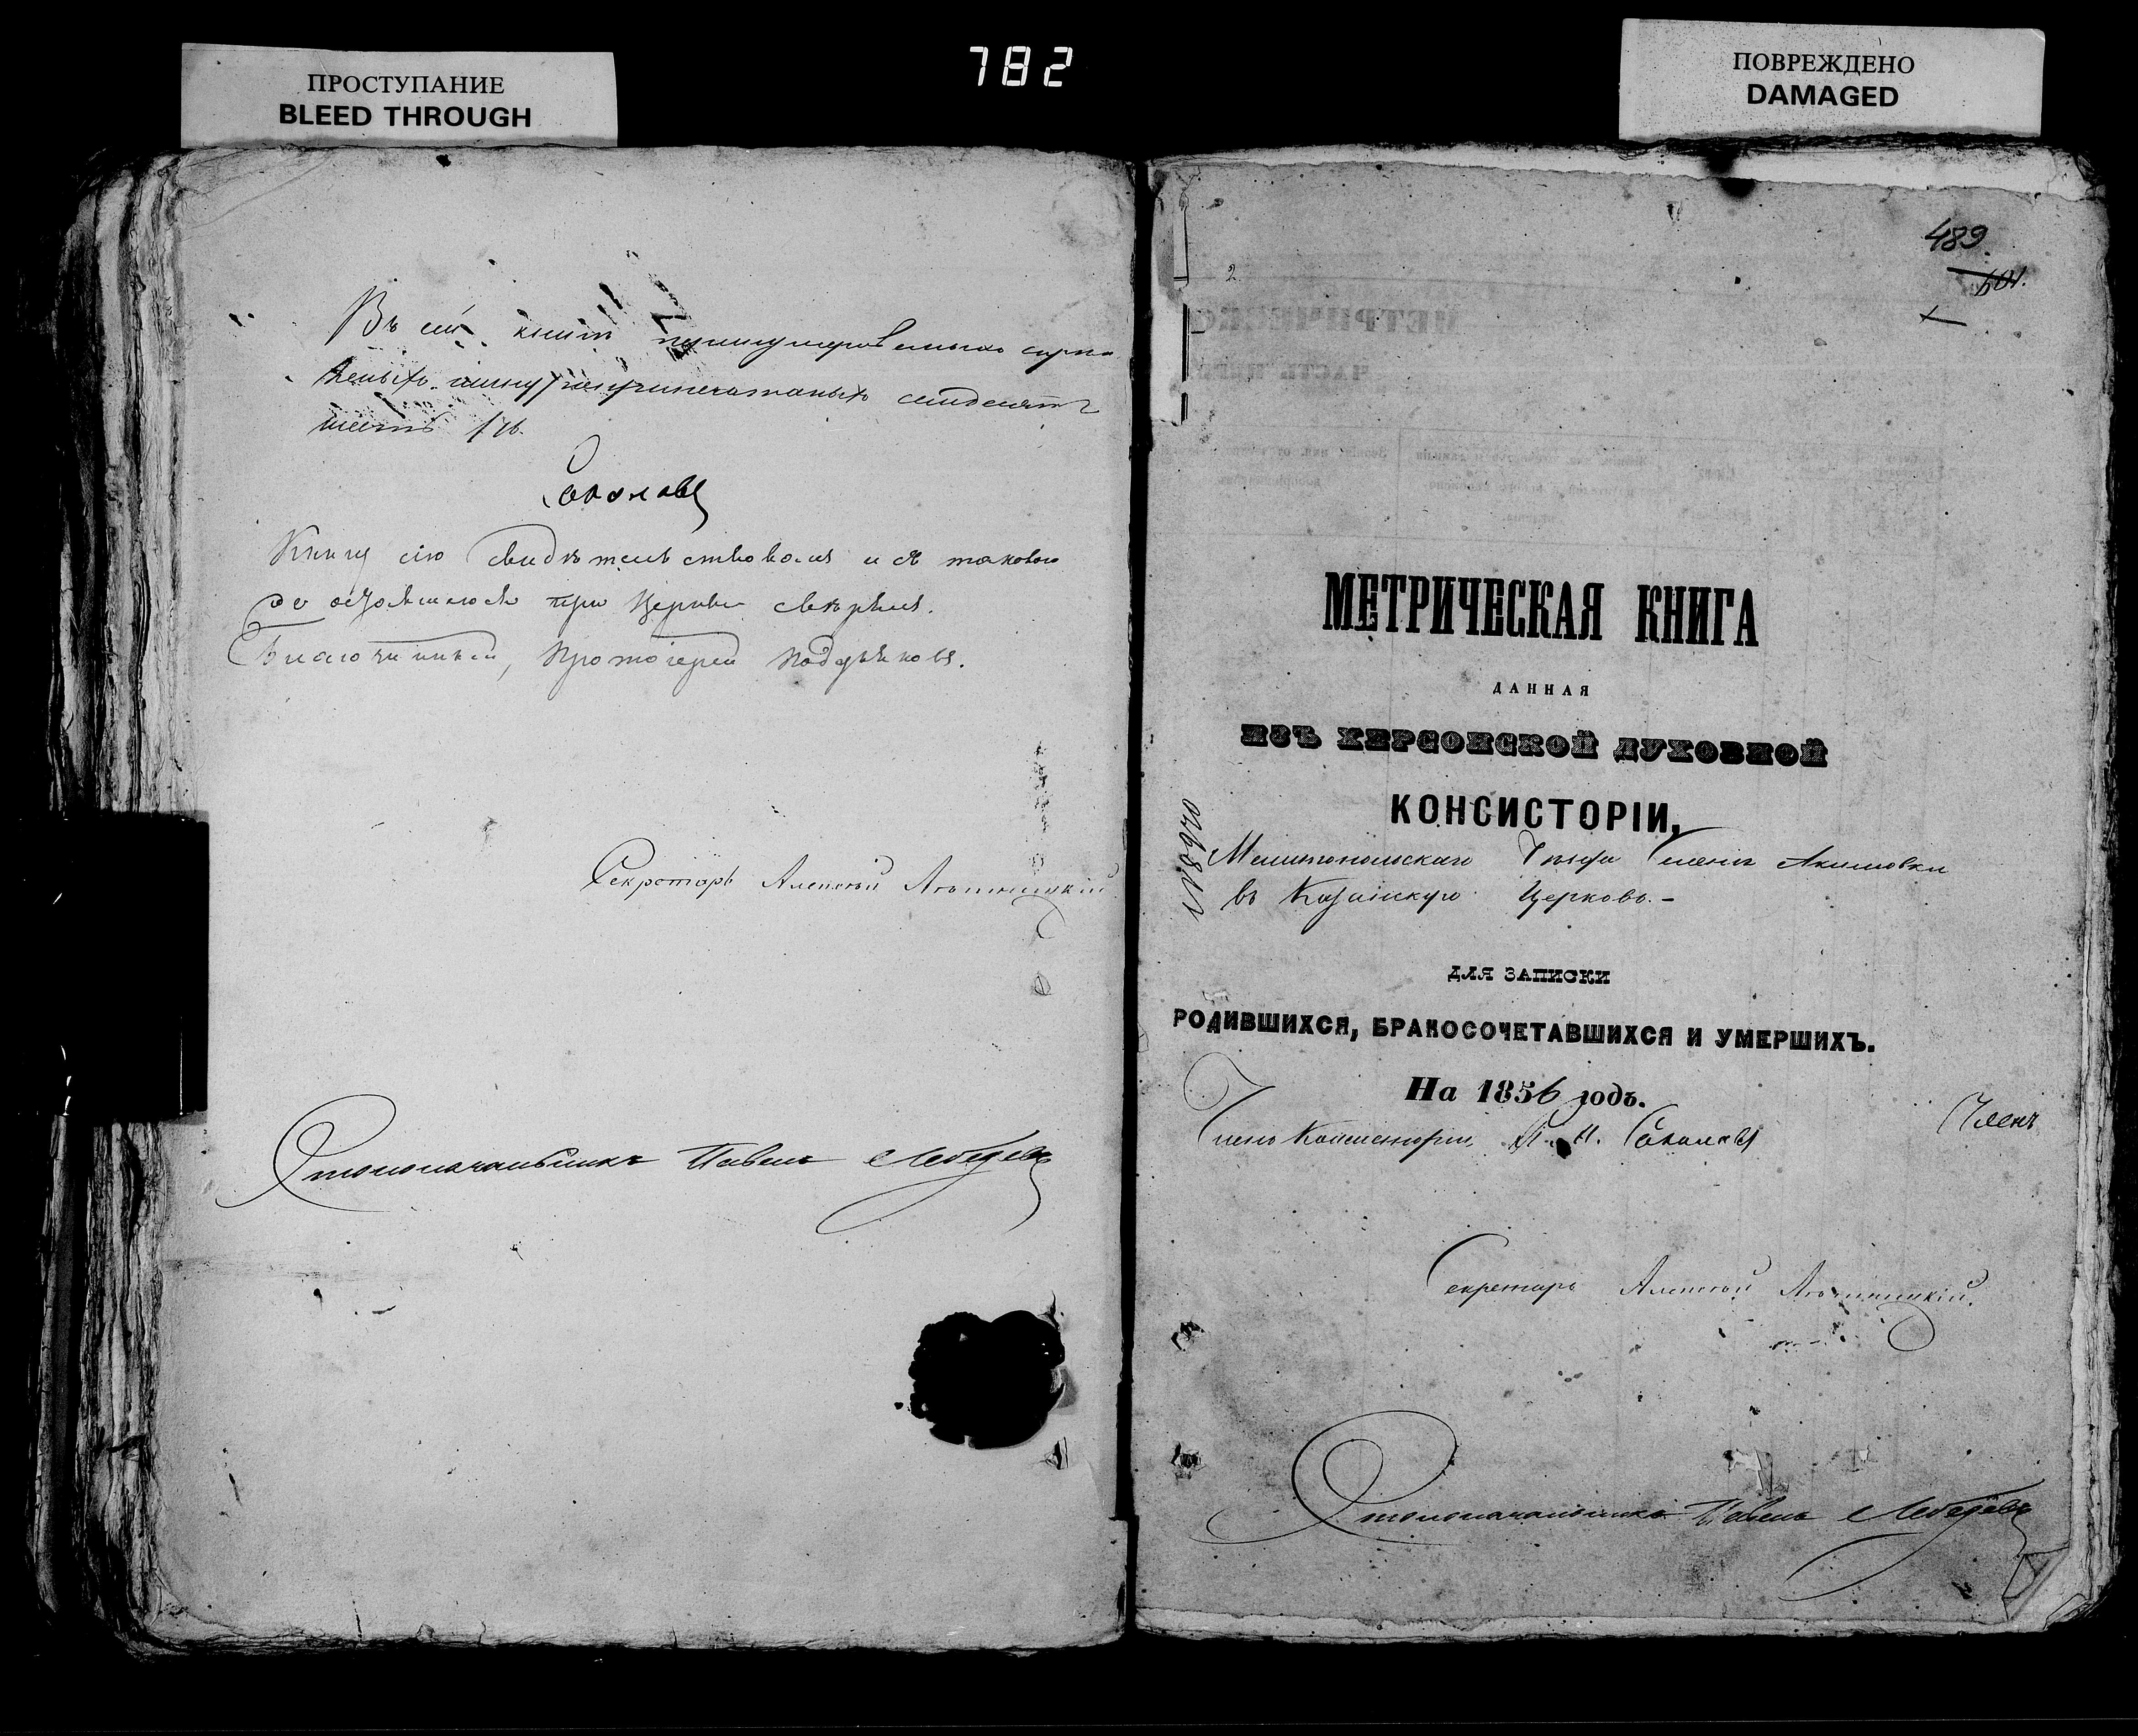 ПРОСТУПАНИЕ
BLEED THROUGH
782
ПОВРЕЖДЕНО
DAMAGED
Въ сей книгѣ пронумерованныхъ
семдесятъ
шесть /76.
Соколовъ
Книгу сію свидѣтельствовалъ и съ таковою
же оставшеюся при Церкви свѣрялъ.
Благочинный, Протоіерей
Секретарь Алексѣй
Столоначальникъ Павелъ Лебедевъ
489
601.
2
МЕТРИЧЕСКАЯ КНИГА
ДАННАЯ
ИЗЪ ХЕРСОНСКОЙ ДУХОВНОЙ
КОНСИСТОРІИ,
Мелитопольскаго уѣзда селенія Акимовки
въ Казанскую Церковь.-
ДЛЯ ЗАПИСКИ
РОДИВШИХСЯ, БРАКОСОЧЕТАВШИХСЯ И УМЕРШИХЪ.
На 1856 годъ.
Членъ Консисторіи, Соколовъ
Членъ
Секретарь Алексѣй
Столоначальникъ Павелъ Лебедевъ